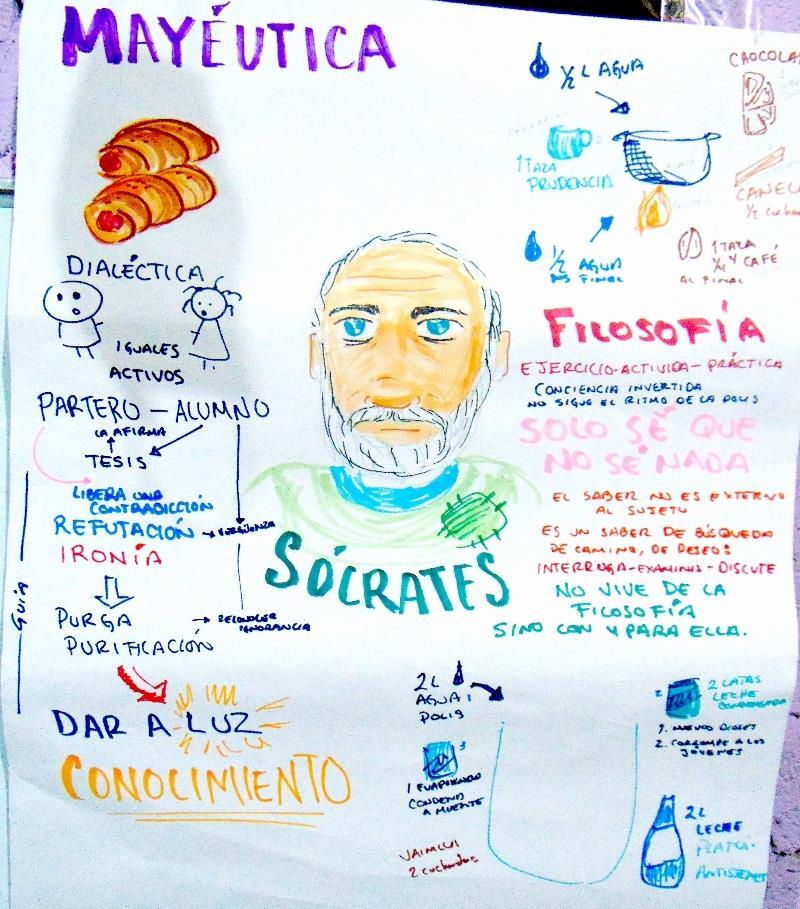 MAYÉUTICA
DIALÉCTICA
IGUALES
ACTIVOS
PARTERO - ALUMNO
LA AFIRMA
TESIS
LIBERA UNA
CONTRADICCIÓN
REFUTACIÓN
IRONÍA
Guía
PURGA
RECONOCER
IGNORANCIA
PURIFICACIÓN
DAR A LUZ
CONOCIMIENTO
SÓCRATES
1/2 L AGUA
1 TAZA
PRUDENCIA
1/2 AGUA
AL FINAL
CANELA
1 TAZA
CAFÉ
AL FINAL
FILOSOFÍA
EJERCICIO-ACTIVIDA-PRÁCTICA
CONCIENCIA INVERTIDA
NO SIGUE EL RITMO DE LA POLIS
SOLO SÉ QUE
NO SÉ NADA
EL SABER NO ES EXTERNO
AL SUJETO
ES UN SABER DE BÚSQUEDA
DE CAMINO, DE DESEO:
INTERROGA-EXAMINA-DISCUTE
NO VIVE DE LA
FILOSOFÍA
SINO CON Y PARA ELLA.
2L
AGUA
POLIS
CONDENA
A MUERTE
2 cucharadas
2 LATAS
LECHE
CONDENSADA
1. NUEVOS DIOSES
2. CORROMPE A LOS
JÓVENES
2L
LECHE